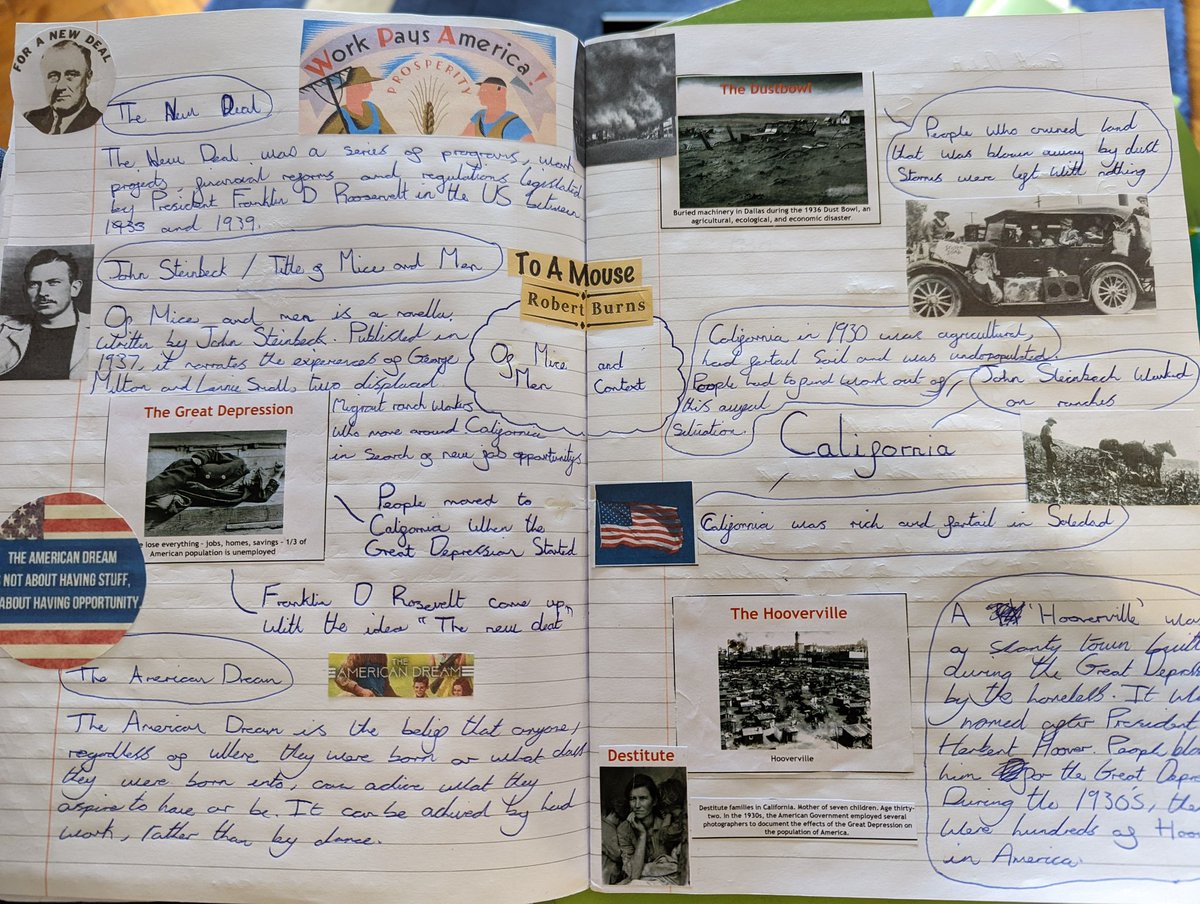 FOR A NEW DEAL
The New Deal
Work Pays America!
PROSPERITY
The New Deal was a series of programs, work
projects, financial reforms and regulations legislated
by President Franklin D Roosevelt in the US between
1933 and 1939.
John Steinbeck / Title of Mice and Men
Of Mice and men is a novella
written by John Steinbeck. Published in
1937, it narrates the experiences of George
Milton and Lennie Small, two displaced
Migrant ranch workers
who move around California
in search of new job opportunitys
The Great Depression
lose everything - jobs, homes, savings - 1/3 of
American population is unemployed
People moved to
California when the
Great Depression Started
Franklin D Rosevelt come up
with the idea "The new deal"
THE AMERICAN DREAM
NOT ABOUT HAVING STUFF,
ABOUT HAVING OPPORTUNITY
The American Dream
THE
AMERICAN DREAM
The American Dream is the belief that anyone,
regardless of where they were born or what class
they were born into, can achive what they
aspire to have or be. It can be achived by hard
work, rather than by chance.
To A Mouse
Robert Burns
Of Mice and
Men Context
The Dustbowl
Buried machinery in Dallas during the 1936 Dust Bowl, an
agricultural, ecological, and economic disaster
People who owned land
that was blown away by dust
Storms were left with nothing
California in 1930 was agricultural,
had fertail Soil and was undopopulated.
People had to find work out of
this awful
situation.
John Steinbeck Worked
on ranches
California
California was rich and fertail in Soledad
The Hooverville
Hooverville
A 'Hooverville' was
a shanty town built
during the Great Depres
by the homeless. It w
named after President
Herbert Hoover. People bla
him for the Great Depre
During the 1930's, the
were hundreds of Hoo
in America.
Destitute
Destitute families in California. Mother of seven children. Age thirty-
two. In the 1930s, the American Government employed several
photographers to document the effects of the Great Depression on
the population of America.